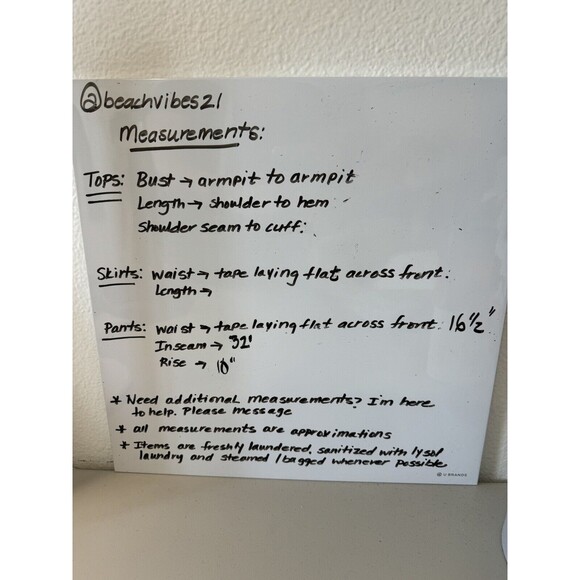 @beachvibes21
Measurements:
Tops: Bust → armpit to armpit
Length → shoulder to hem
Shoulder seam to cuff:
Skirts: Waist → tape laying flat across front:
Length →
Pants: Waist → tape laying flat across front: 16 1/2"
Inseam → 32"
Rise → 10"
* Need additional measurements? I'm here
to help. Please message
* all measurements are approximations
* Items are freshly laundered, sanitized with lysol
laundry and steamed / bagged whenever possible
U BRANDS